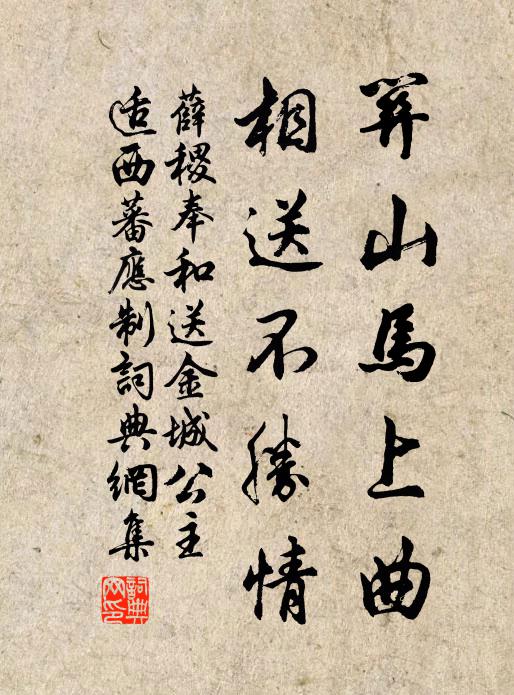 關山馬上曲
相送不勝情
薛稷奉和送金城公主
适西蕃應制詞典網集
詞典网印